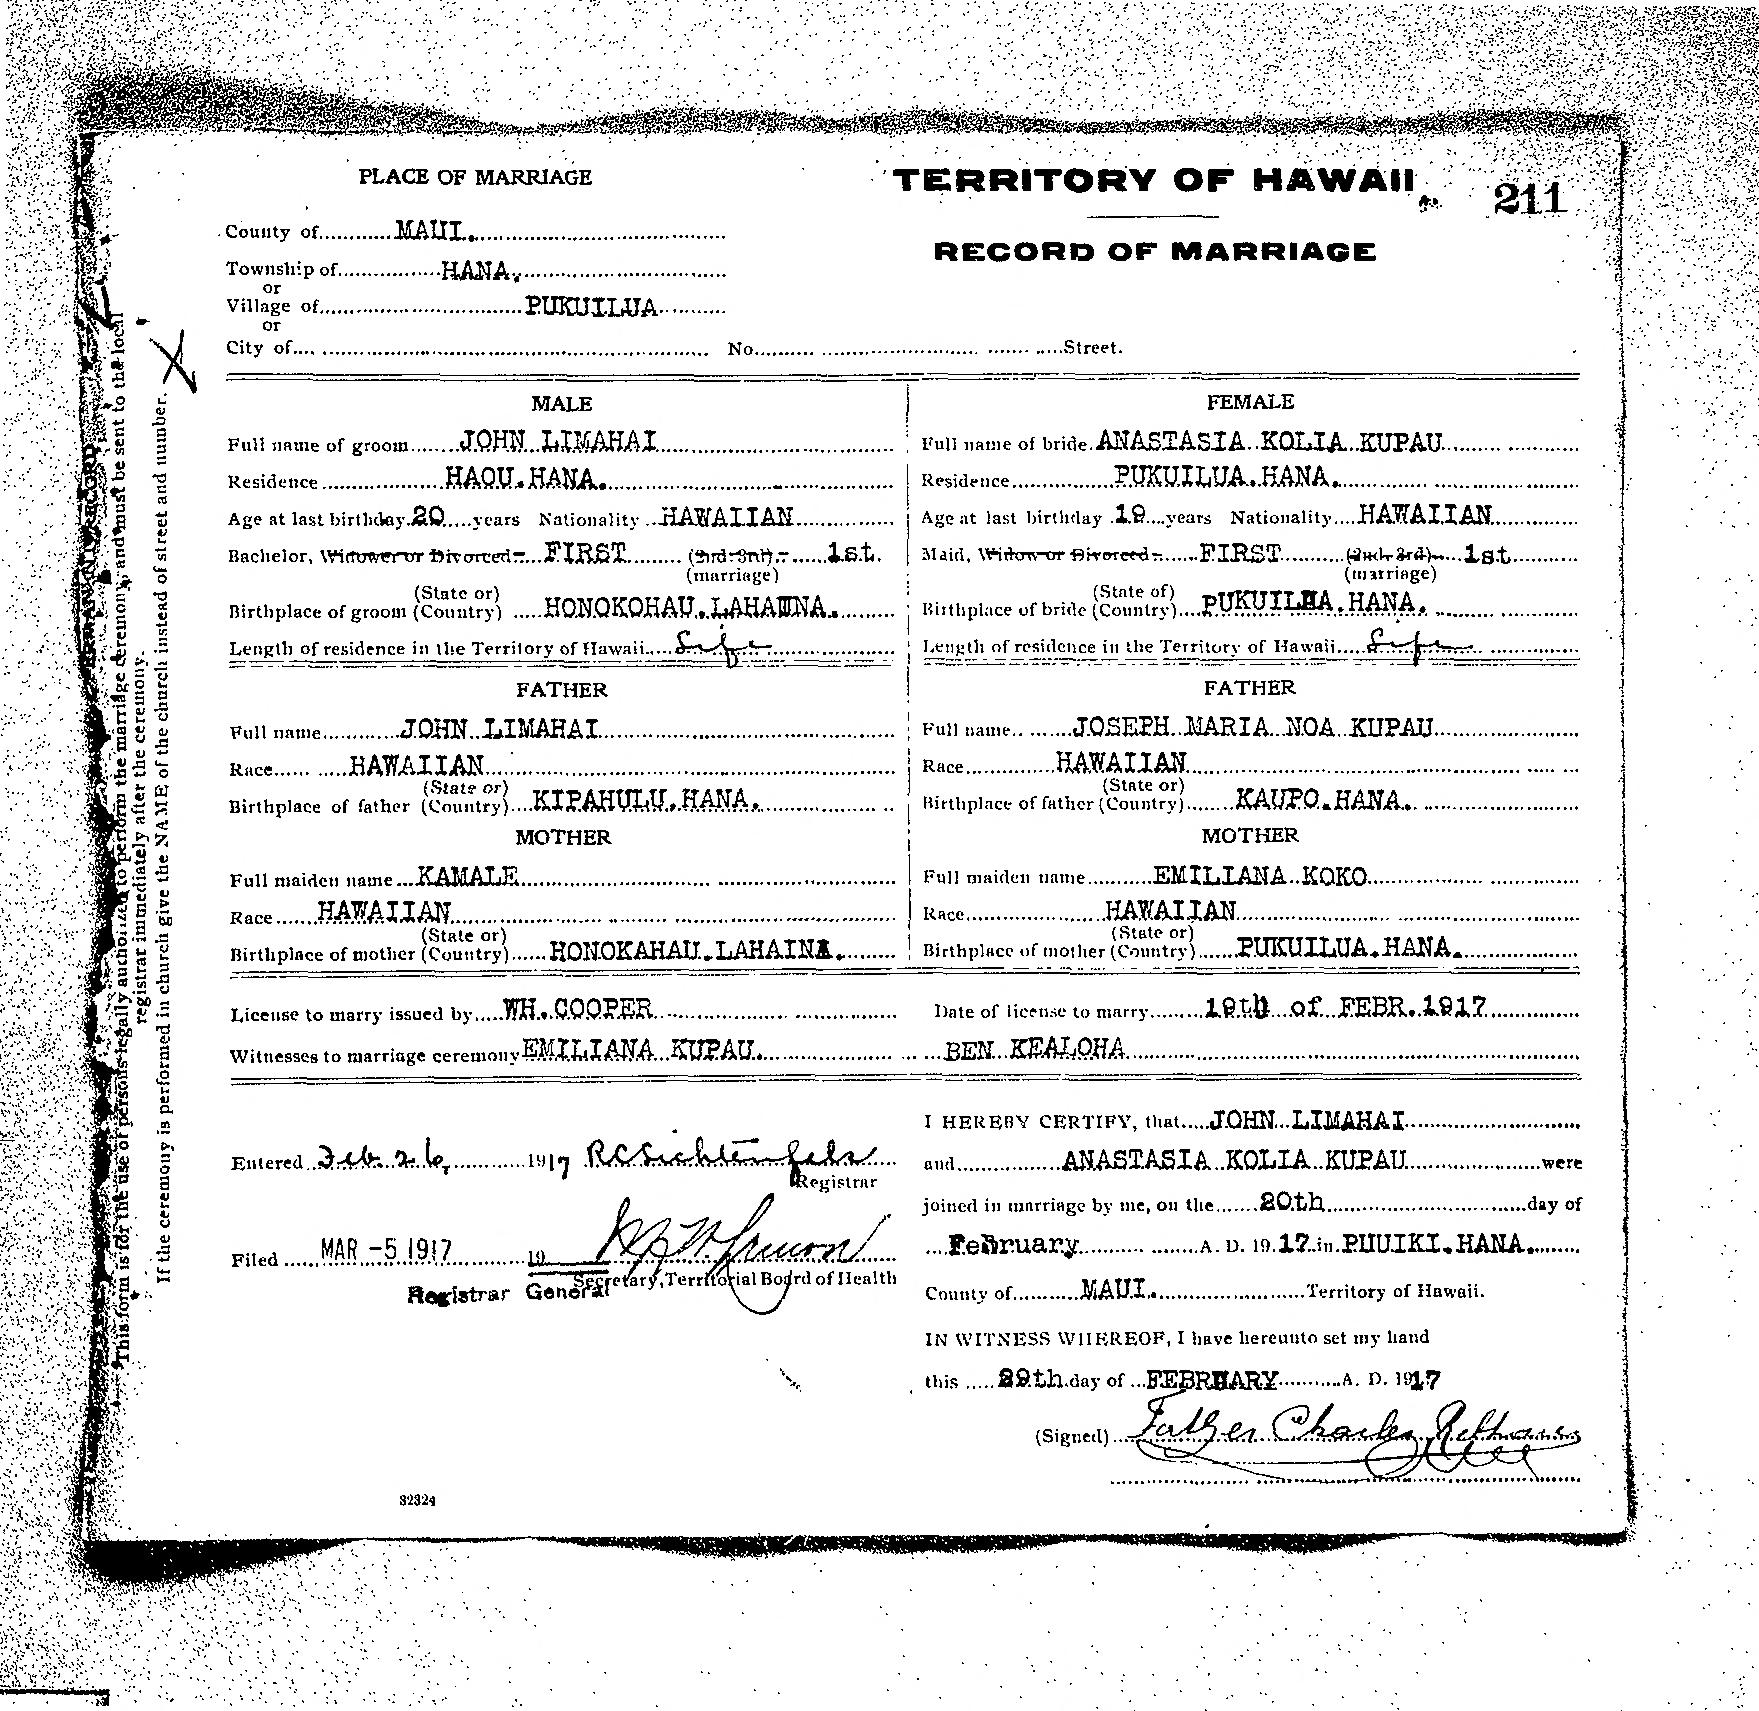 PLACE OF MARRIAGE
TERRITORY OF HAWAII
211
County of MAUI.
RECORD OF MARRIAGE
Township of HANA.
or
Village of PUKUILUA
or
City of No. Street.
MALE
FEMALE
Full name of groom JOHN LIMAHAI
Full name of bride ANASTASIA KOLIA KUPAU
Residence HAOU.HANA.
Residence PUKUILUA.HANA.
Age at last birthday 20 years Nationality HAWAIIAN
Age at last birthday 19 years Nationality HAWAIIAN
Bachelor, Widower or Divorced- FIRST (2rd-3rd).- 1st.
(marriage)
Maid, Widow or Divorced- FIRST (2nd-3rd) 1st
(marriage)
(State or)
Birthplace of groom (Country) HONOKOHAU.LAHAINA.
(State of)
Birthplace of bride (Country) PUKUILUA.HANA.
Length of residence in the Territory of Hawaii Life
Length of residence in the Territory of Hawaii Life
FATHER
FATHER
Full name JOHN LIMAHAI
Full name JOSEPH MARIA NOA KUPAU
Race HAWAIIAN
Race HAWAIIAN
(State or)
Birthplace of father (Country) KIPAHULU.HANA.
(State or)
Birthplace of father (Country) KAUPO.HANA.
MOTHER
MOTHER
Full maiden name KAMALE
Full maiden name EMILIANA KOKO
Race HAWAIIAN
Race HAWAIIAN
(State or)
Birthplace of mother (Country) HONOKAHAU.LAHAINA.
(State or)
Birthplace of mother (Country) PUKUILUA.HANA.
License to marry issued by WH.COOPER
Date of license to marry 19th of FEBR.1917
Witnesses to marriage ceremony EMILIANA KUPAU. BEN KEALOHA
I HEREBY CERTIFY, that JOHN LIMAHAI
and ANASTASIA KOLIA KUPAU were
joined in marriage by me, on the 20th day of
February A. D. 1917 in PUUIKI.HANA.
County of MAUI. Territory of Hawaii.
IN WITNESS WHEREOF, I have hereunto set my hand
this 29th day of FEBRUARY A. D. 1917
(Signed) Father Charles
Entered Feb 26, 1917
Registrar
Filed MAR -5 1917 19
Secretary, Territorial Board of Health
Registrar General
32324
This form is for the use of persons legally authorized to perform the marriage ceremony, and must be sent to the local
registrar immediately after the ceremony.
If the ceremony is performed in church give the NAME of the church instead of street and number.